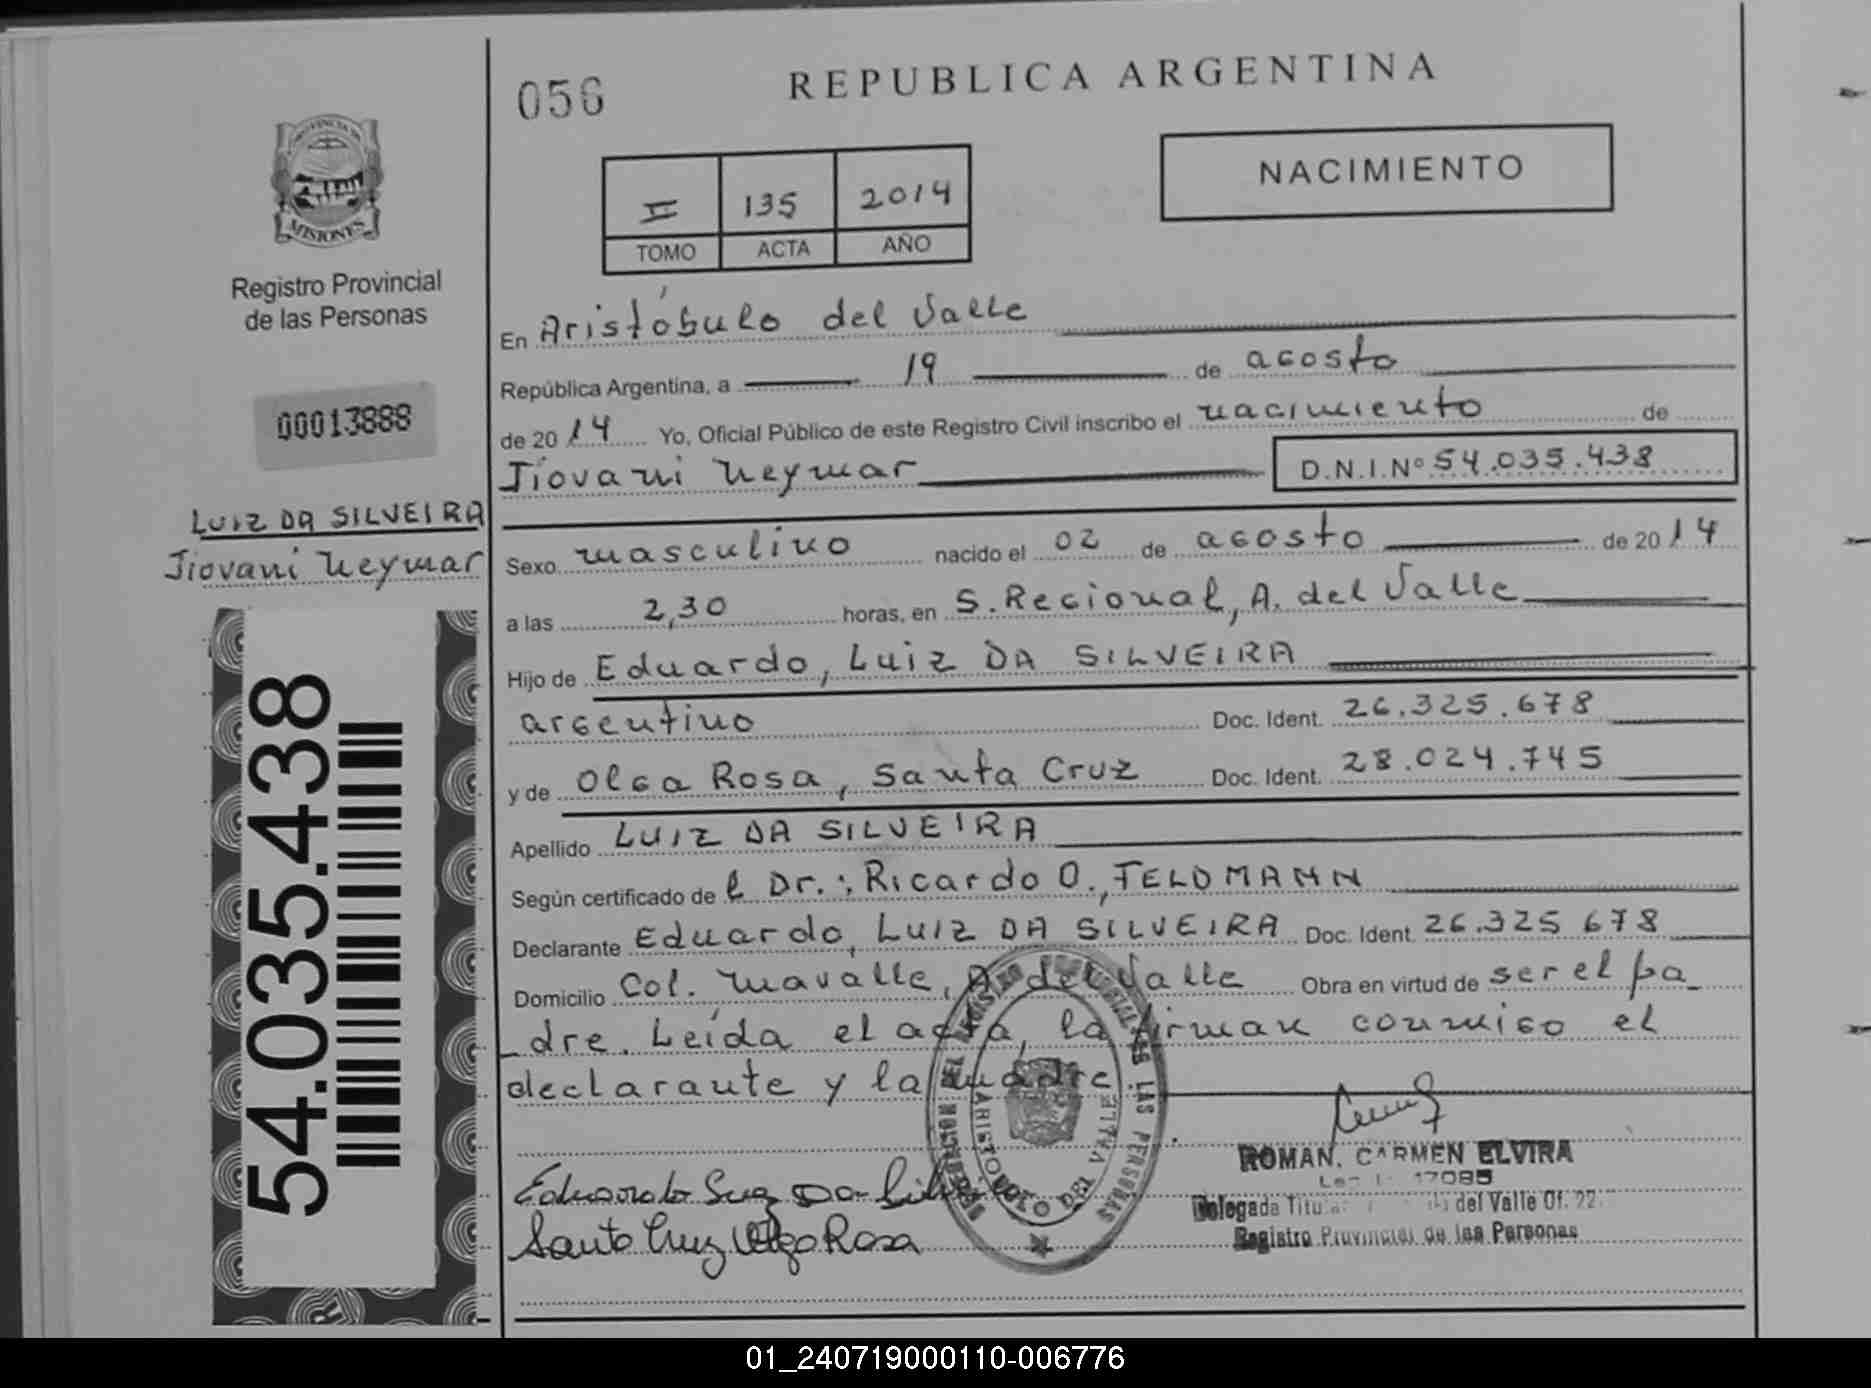 056
REPUBLICA ARGENTINA
PROVINCIA DE
MISIONES
Registro Provincial
de las Personas
II 135 2014
TOMO ACTA AÑO
NACIMIENTO
00013888
LUIZ DA SILVEIRA
Jiovani Neymar
54.035.438
En Aristóbulo del Valle
República Argentina, a 19 de agosto
de 2014 Yo, Oficial Público de este Registro Civil inscribo el nacimiento de
Jiovani Neymar D.N.I.Nº 54.035.438
Sexo masculino nacido el 02 de agosto de 2014
a las 2,30 horas, en S. Regional, A. del Valle
Hijo de Eduardo, Luiz DA SILVEIRA
argentino Doc. Ident. 26.325.678
y de Olga Rosa, Santa Cruz Doc. Ident. 28.024.745
Apellido LUIZ DA SILVEIRA
Según certificado de l Dr.: Ricardo O., FELDMANN
Declarante Eduardo, LUIZ DA SILVEIRA Doc. Ident. 26.325 678
Domicilio Col. Mavalle, A. del Valle Obra en virtud de ser el pa_
_dre. Leída el acta, la firman conmigo el
declarante y la madre.
ROMAN, CARMEN ELVIRA
17085
Delegada Titular del Valle Of. 22
Registro Provincial de las Personas
Santa Cruz Olga Rosa
ARISTOBULO DEL VALLE
01_240719000110-006776